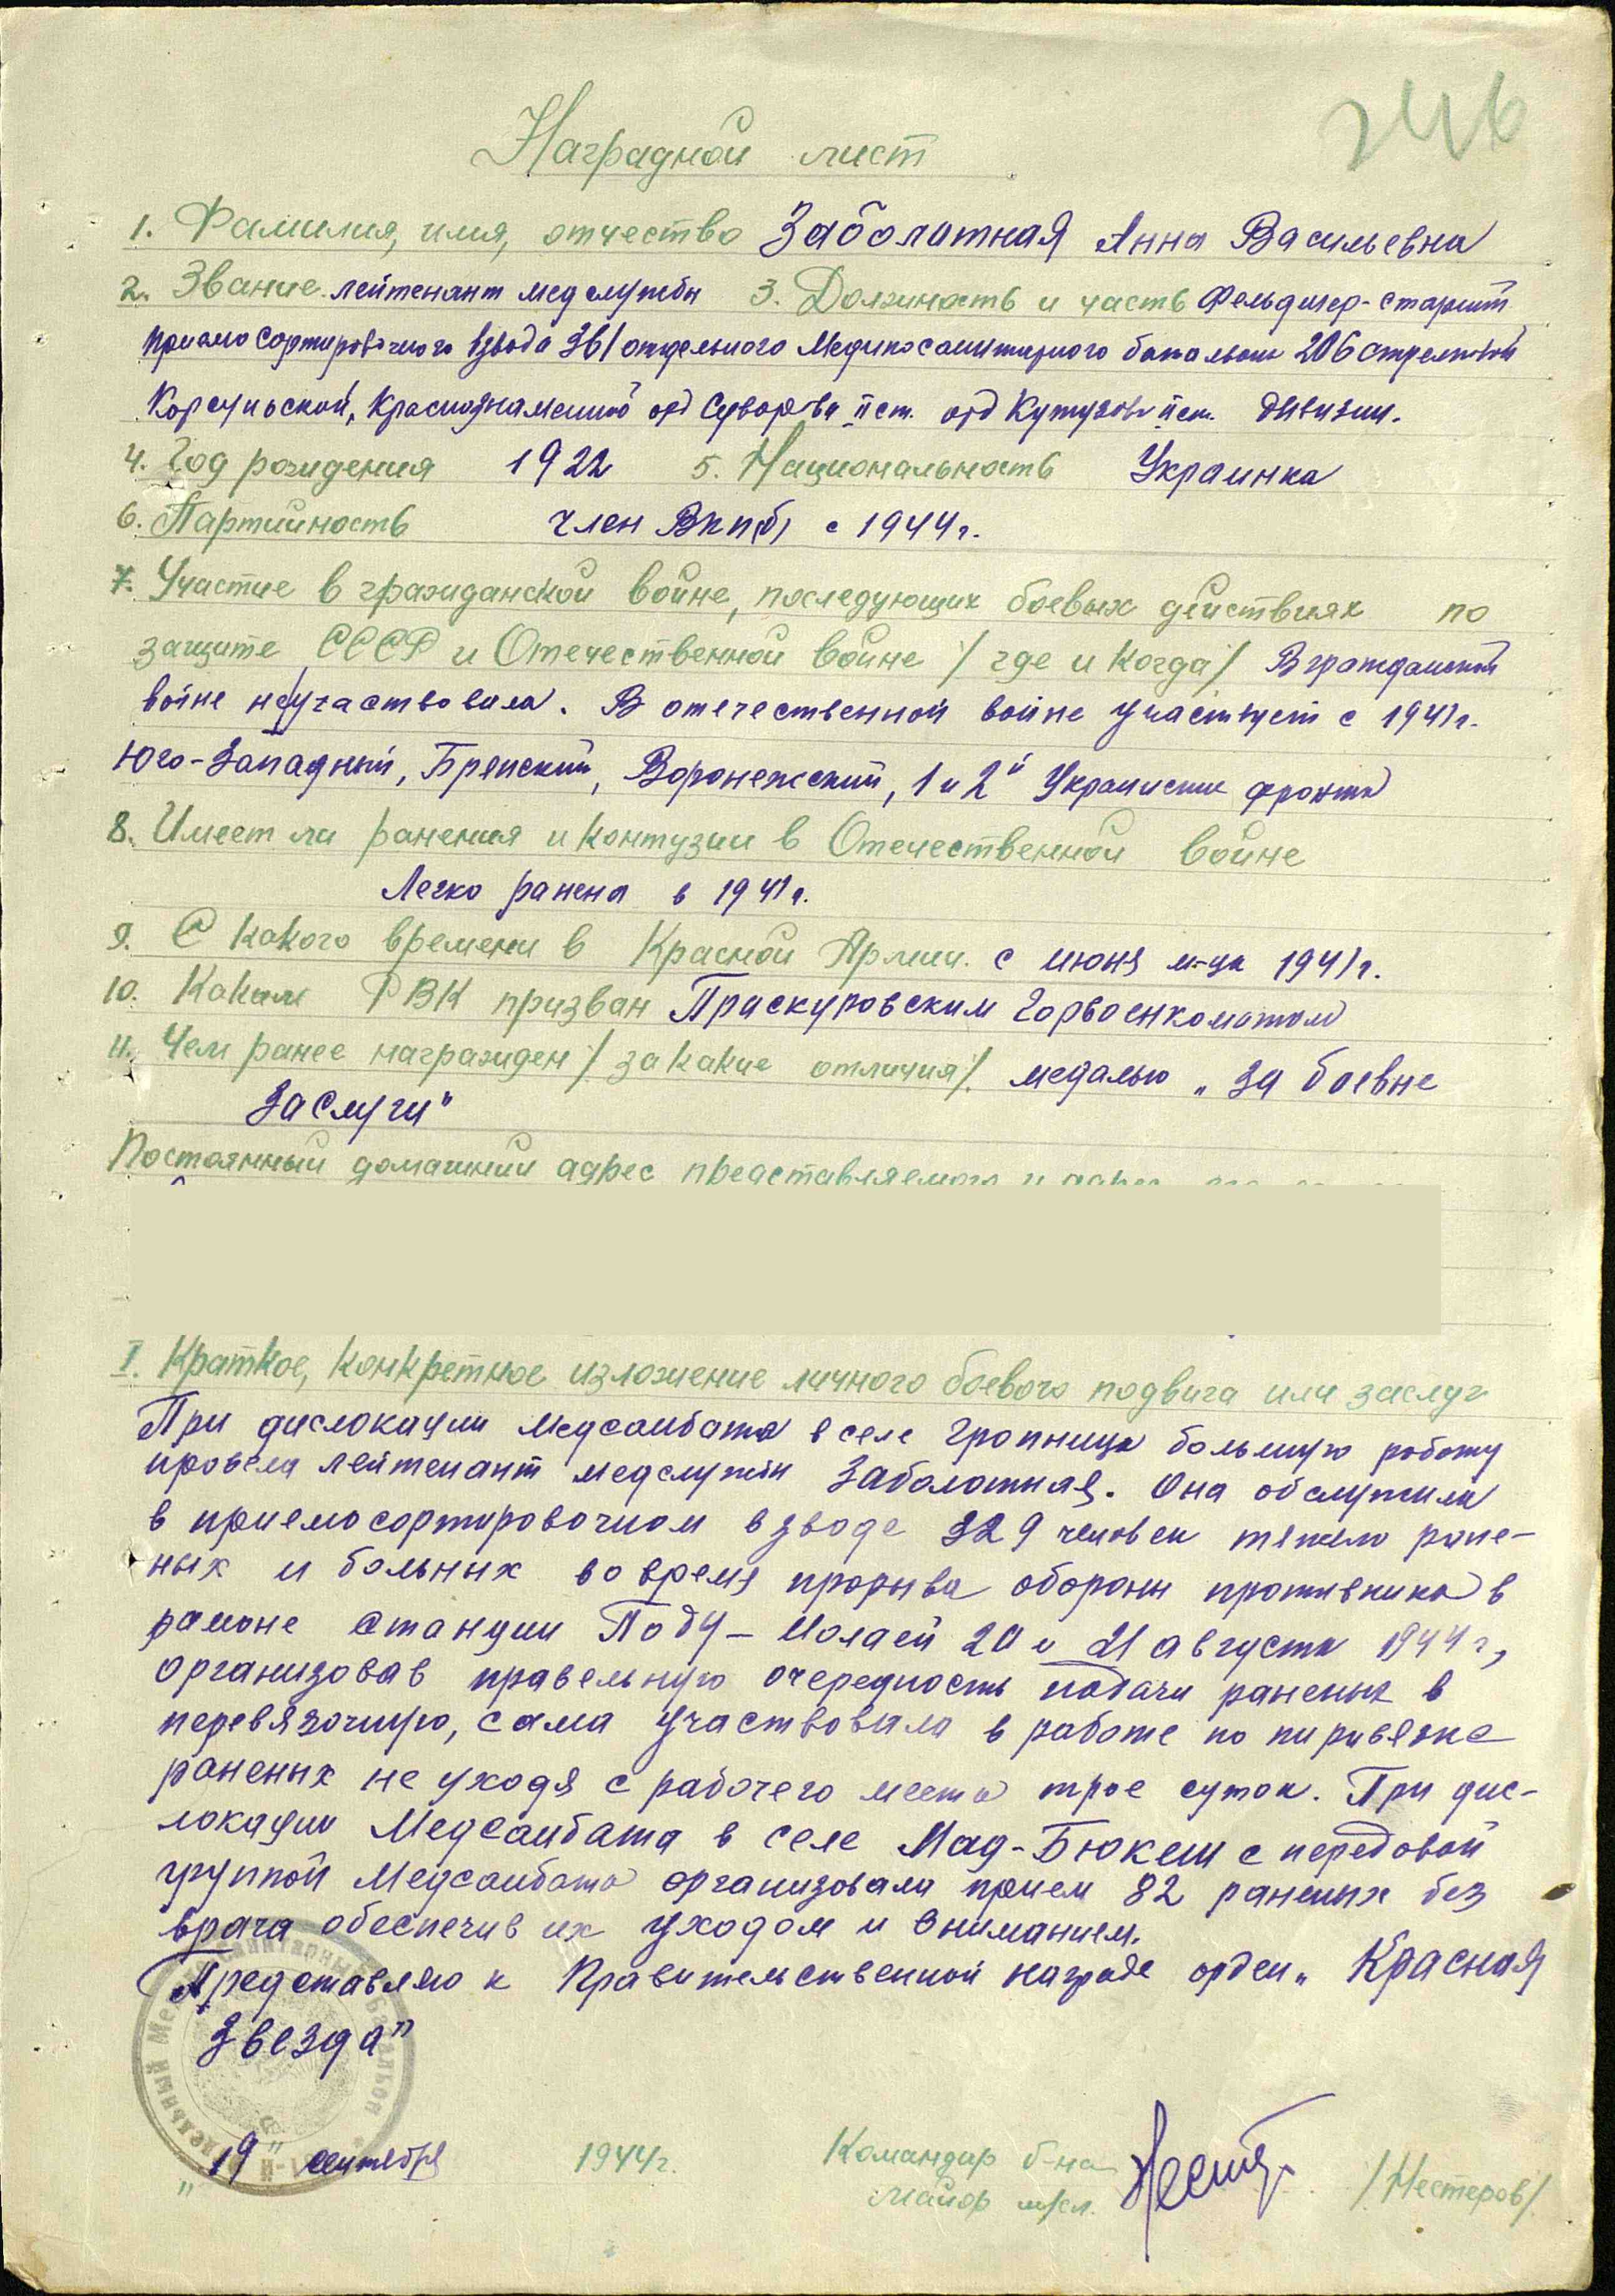 246
Наградной лист
1. Фамилия, имя, отчество Заболатная Анна Васильевна
2. Звание лейтенант медслужбы 3. Должность и часть Фельдшер-старший
приемо сортировочного взвода 361 отдельного Медикосанитарного батальона 206 стрелковой
Корсуньской, Краснознаменной орд Суворова II ст. орд Кутузова II ст. дивизии.
4. Год рождения 1922 5. Национальность Украинка
6. Партийность член ВКП(б) с 1944 г.
7. Участие в гражданской войне, последующих боевых действиях по
защите СССР и Отечественной войне / где и когда / В гражданской
войне не участвовала. В отечественной войне участвует с 1941 г.
Юго-Западный, Брянский, Воронежский, 1 и 2й Украинские фронта
8. Имеет ли ранения и контузии в Отечественной войне
Легко ранена в 1941 г.
9. С какого времени в Красной Армии. с июня м-ца 1941 г.
10. Каким РВК призван Праскуровским Горвоенкоматом
11. Чем ранее награжден / за какие отличия /. медалью „За боевые
заслуги"
Постоянный домашний адрес представляемого и адрес
I. Краткое, конкретное изложение личного боевого подвига или заслуг
При дислокации Медсанбата в селе Гропница большую работу
провела лейтенант медслужбы Заболотная. Она обслужила
в приемосортировочном взводе 329 человек тяжело ране-
ных и больных во время прорыва обороны противника в
районе станции Поду-Илоаей 20 и 21 августа 1944 г.,
организовав правельную очередность подачи раненых в
перевязочную, сама участвовала в работе по пиривязке
раненых не уходя с рабочего места трое суток. При дис-
локации Медсанбата в селе Мад-Бюкеш с передовой
группой Медсанбата организовала прием 82 раненых без
врача обеспечив их уходом и вниманием.
Представляю к Правительственной награде орден „Красная
Звезда"
„19" сентября 1944 г. Командир б-на
Майор м/сл. /Нестеров/